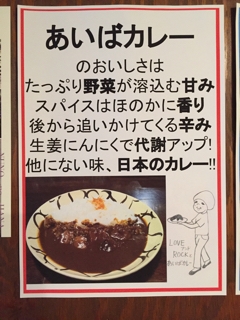 あいばカレー
のおいしさは
たっぷり野菜が溶込む甘み
スパイスはほのかに香り
後から追いかけてくる辛み
生姜にんにくで代謝アップ!
他にない味、日本のカレー!!
LOVE
ROCK